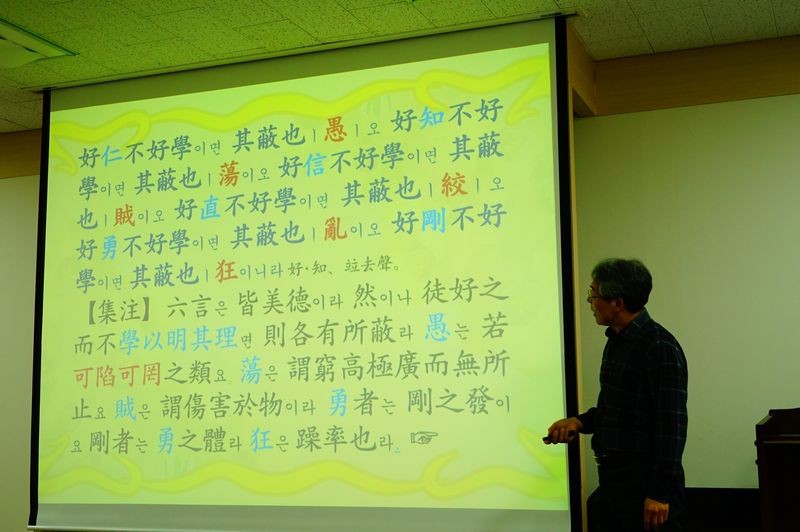 好仁不好學이면 其蔽也ㅣ愚ㅣ오 好知不好
學이면 其蔽也ㅣ蕩이오 好信不好學이면 其蔽
也ㅣ賊이오 好直不好學이면 其蔽也ㅣ絞ㅣ오
好勇不好學이면 其蔽也ㅣ亂이오 好剛不好
學이면 其蔽也ㅣ狂이니라 好·知、竝去聲。
【集注】 六言은 皆美德이라 然이나 徒好之
而不學以明其理면 則各有所蔽라 愚는 若
可陷可罔之類요 蕩은 謂窮高極廣而無所
止요 賊은 謂傷害於物이라 勇者는 剛之發이
요 剛者는 勇之體라 狂은 躁率也라.☞